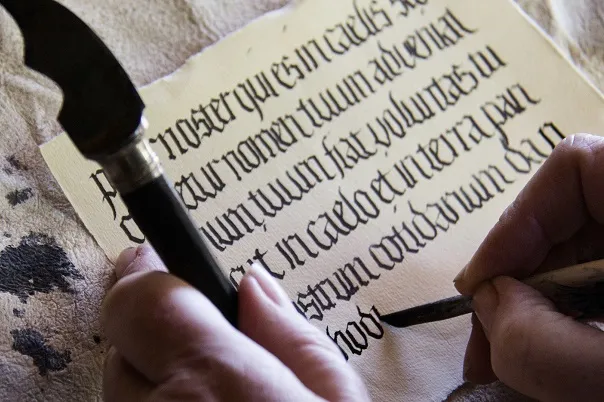 noster qui es in caelis sa
etur nomen tuum adveniat
num tuum fiat voluntas tu
ut in caelo et in terra pan
strum cotidianum da n
hodi